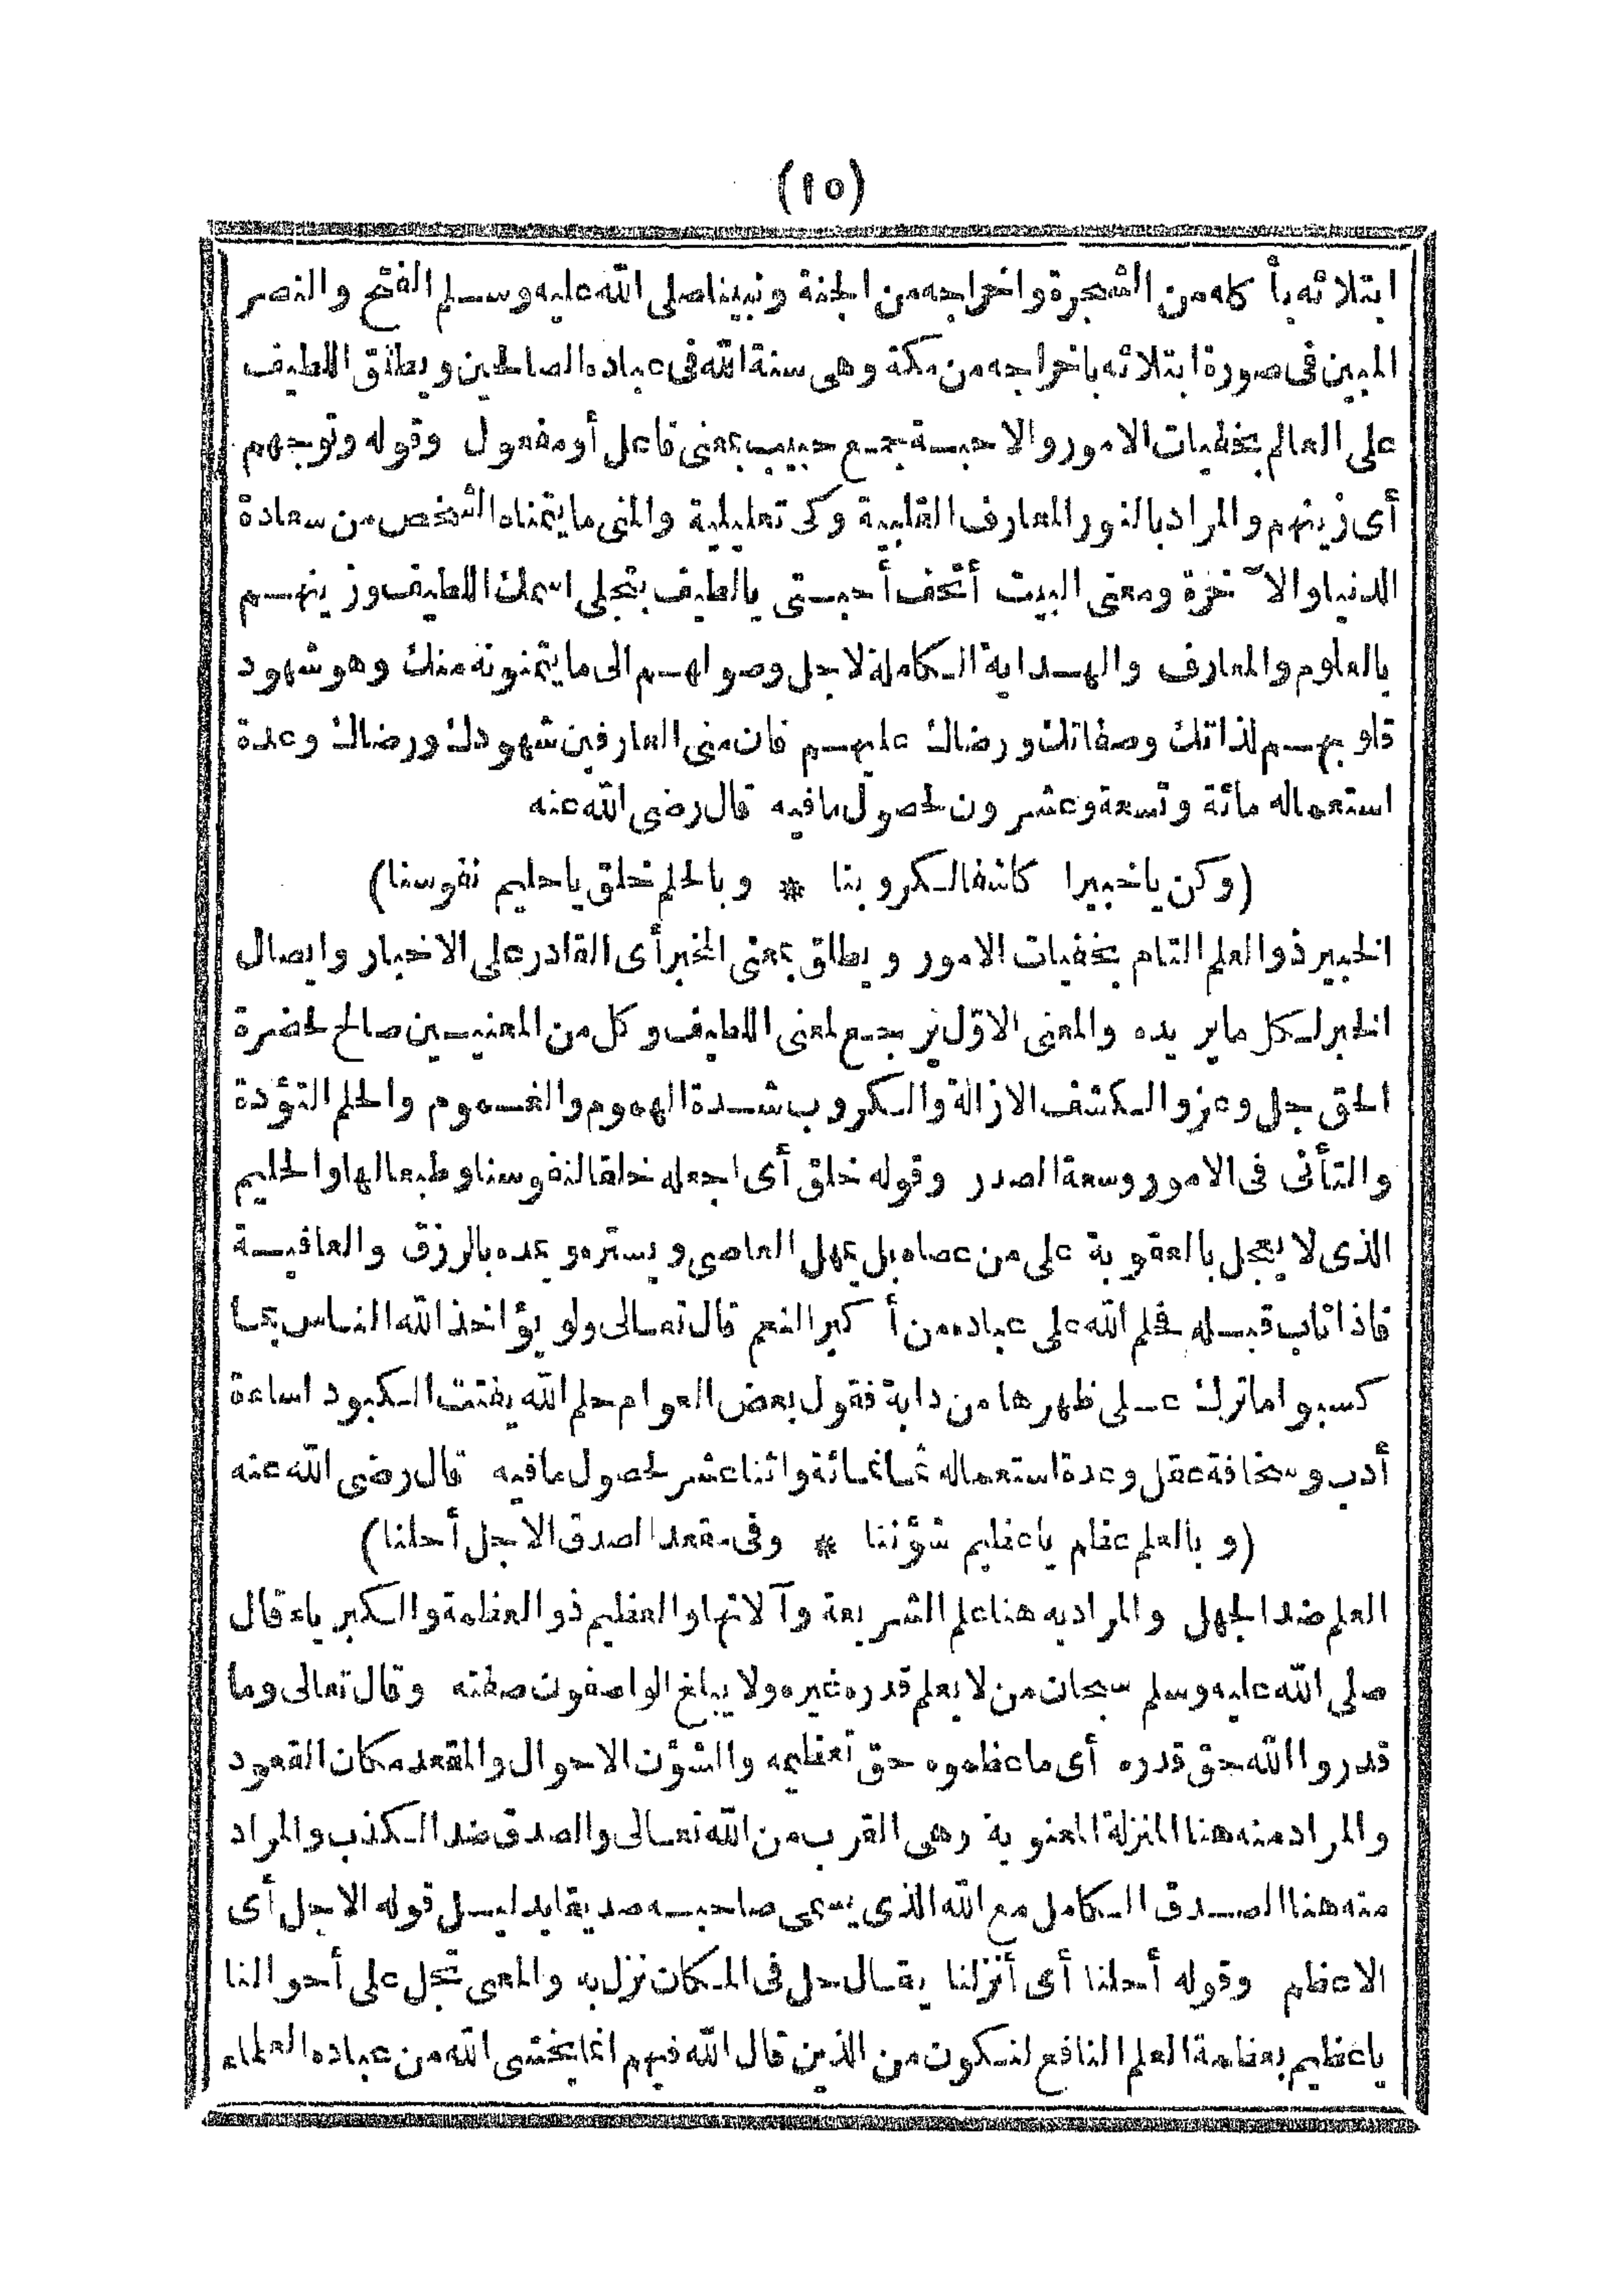 (١٥)
ابتلائه بأكله من الشجرة واخراجه من الجنة ونبينا صلى الله عليه وسلم الفتح والنصر
المبين فى صورة ابتلائه باخراجه من مكة وهى سنة الله فى عباده الصالحين ويطلق اللطيف
على العالم بخفيات الامور والاحبة جمع حبيب بمعنى فاعل أو مفعول وقوله وتوجهم
أى زينهم والمراد بالنور المعارف القلبية وكى تعليلية والمنى ما يتمناه الشخص من سعادة
الدنيا والآخرة ومعنى البيت أتحف أحبتى يالطيف بتجلى اسمك اللطيف وزينهم
بالعلوم والمعارف والهداية الكاملة لاجل وصولهم الى ما يتمنونه منك وهو شهود
قلوبهم لذاتك وصفاتك ورضاك عليهم فان منى العارفين شهودك ورضاك وعدة
استعماله مائة وتسعة وعشرون لحصول ما فيه قال رضى الله عنه
(وكن ياخبيرا كاشفا لكروبنا * وبالحلم خلق ياحليم نفوسنا)
الخبير ذو العلم التام بخفيات الامور ويطلق بمعنى المخبر أى القادر على الاخبار وايصال
الخبر لكل ما يريده والمعنى الاوّل يرجع لمعنى اللطيف وكل من المعنيين صالح لحضرة
الحق جل وعز والكشف الازالة والكروب شدة الهموم والغموم والحلم التؤدة
والتأنى فى الامور وسعة الصدر وقوله خلق أى اجعله خلقا لنفوسنا وطبعا لها والحليم
الذى لا يعجل بالعقوبة على من عصاه بل يمهل العاصى ويستره ويمده بالرزق والعافية
فاذا تاب قبله فحلم الله على عباده من أكبر النعم قال تعالى ولو يؤاخذ الله الناس بما
كسبوا ما ترك على ظهرها من دابة فقول بعض العوام حلم الله يفتت الكبود اساءة
أدب وسخافة عقل وعدة استعماله ثمانمائة واثنا عشر لحصول ما فيه قال رضى الله عنه
(وبالعلم عظم ياعظيم شؤننا * وفى مقعد الصدق الاجل أحلنا)
العلم ضد الجهل والمراد به هنا علم الشريعة وآلاتها والعظيم ذو العظمة والكبرياء قال
صلى الله عليه وسلم سبحان من لا يعلم قدره غيره ولا يبلغ الواصفون صفته وقال تعالى وما
قدروا الله حق قدره أى ما عظموه حق تعظيمه والشؤن الاحوال والمقعد مكان القعود
والمراد منه هنا المنزلة المعنوية وهى القرب من الله تعالى والصدق ضد الكذب والمراد
منه هنا الصدق الكامل مع الله الذى يسمى صاحبه صديقا بدليل قوله الاجل أى
الاعظم وقوله أحلنا أى أنزلنا يقال حل فى المكان نزل به والمعنى تجل على أحوالنا
ياعظيم بعظمة العلم النافع لنكون من الذين قال الله فيهم انما يخشى الله من عباده العلماء